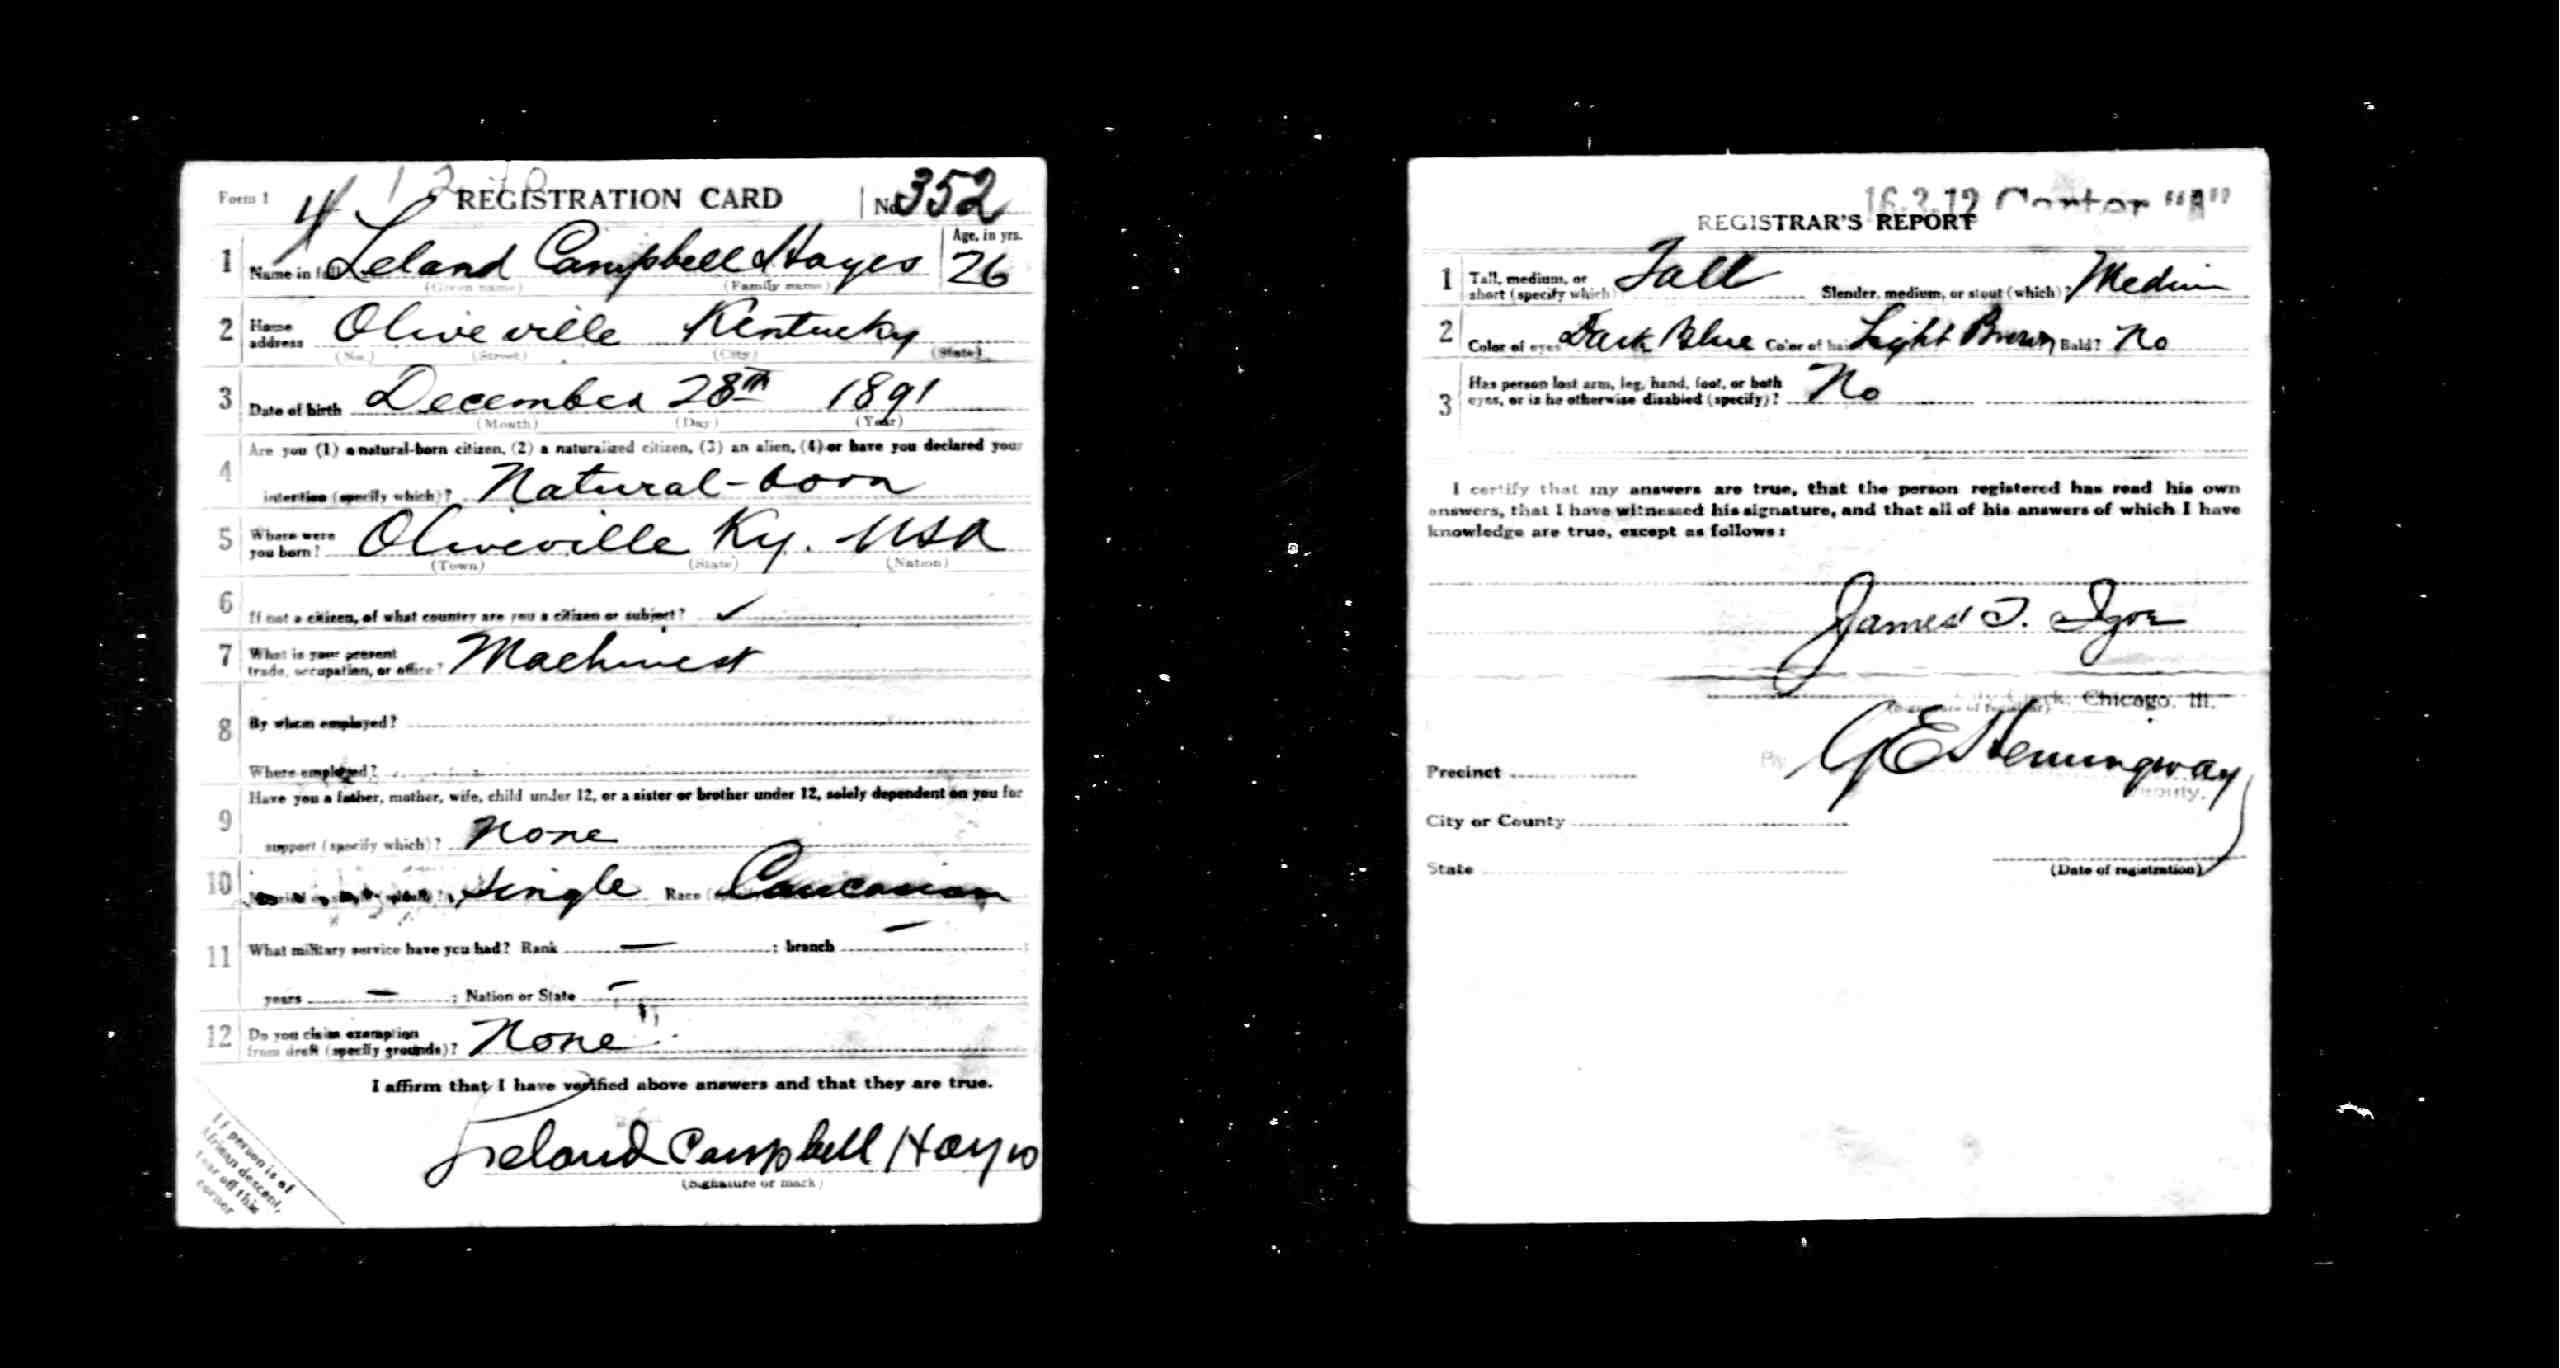 Form 1
REGISTRATION CARD No. 352
1 Name in full Leland Campbell Hayes Age, in yrs. 26
(Given name) (Family name)
2 Home address Oliveville Kentucky
(No.) (Street) (City) (State)
3 Date of birth December 28th 1891
(Month) (Day) (Year)
4 Are you (1) a natural-born citizen, (2) a naturalized citizen, (3) an alien, (4) or have you declared your
intention (specify which)? Natural-born
5 Where were you born? Oliveville Ky. USA
(Town) (State) (Nation)
6 If not a citizen, of what country are you a citizen or subject? ✓
7 What is your present
trade, occupation, or office? Machinest
8 By whom employed?
Where employed?
9 Have you a father, mother, wife, child under 12, or a sister or brother under 12, solely dependent on you for
support (specify which)? None
10 Single Race Caucasian
11 What military service have you had? Rank — ; branch —
years — ; Nation or State —
12 Do you claim exemption
from draft (specify grounds)? None
I affirm that I have verified above answers and that they are true.
Leland Campbell Hayes
(Signature or mark)
If person is of
African descent,
tear off this
corner
REGISTRAR'S REPORT
1 Tall, medium, or
short (specify which)? Tall Slender, medium, or stout (which)? Medium
2 Color of eyes Dark Blue Color of hair Light Brown Bald? No
3 Has person lost arm, leg, hand, foot, or both
eyes, or is he otherwise disabled (specify)? No
I certify that my answers are true, that the person registered has read his own
answers, that I have witnessed his signature, and that all of his answers of which I have
knowledge are true, except as follows:
James T. Igoe
Clerk, Chicago, Ill.
(Signature of registrar)
By G E Hemingway
Deputy.
Precinct
City or County
State
(Date of registration)